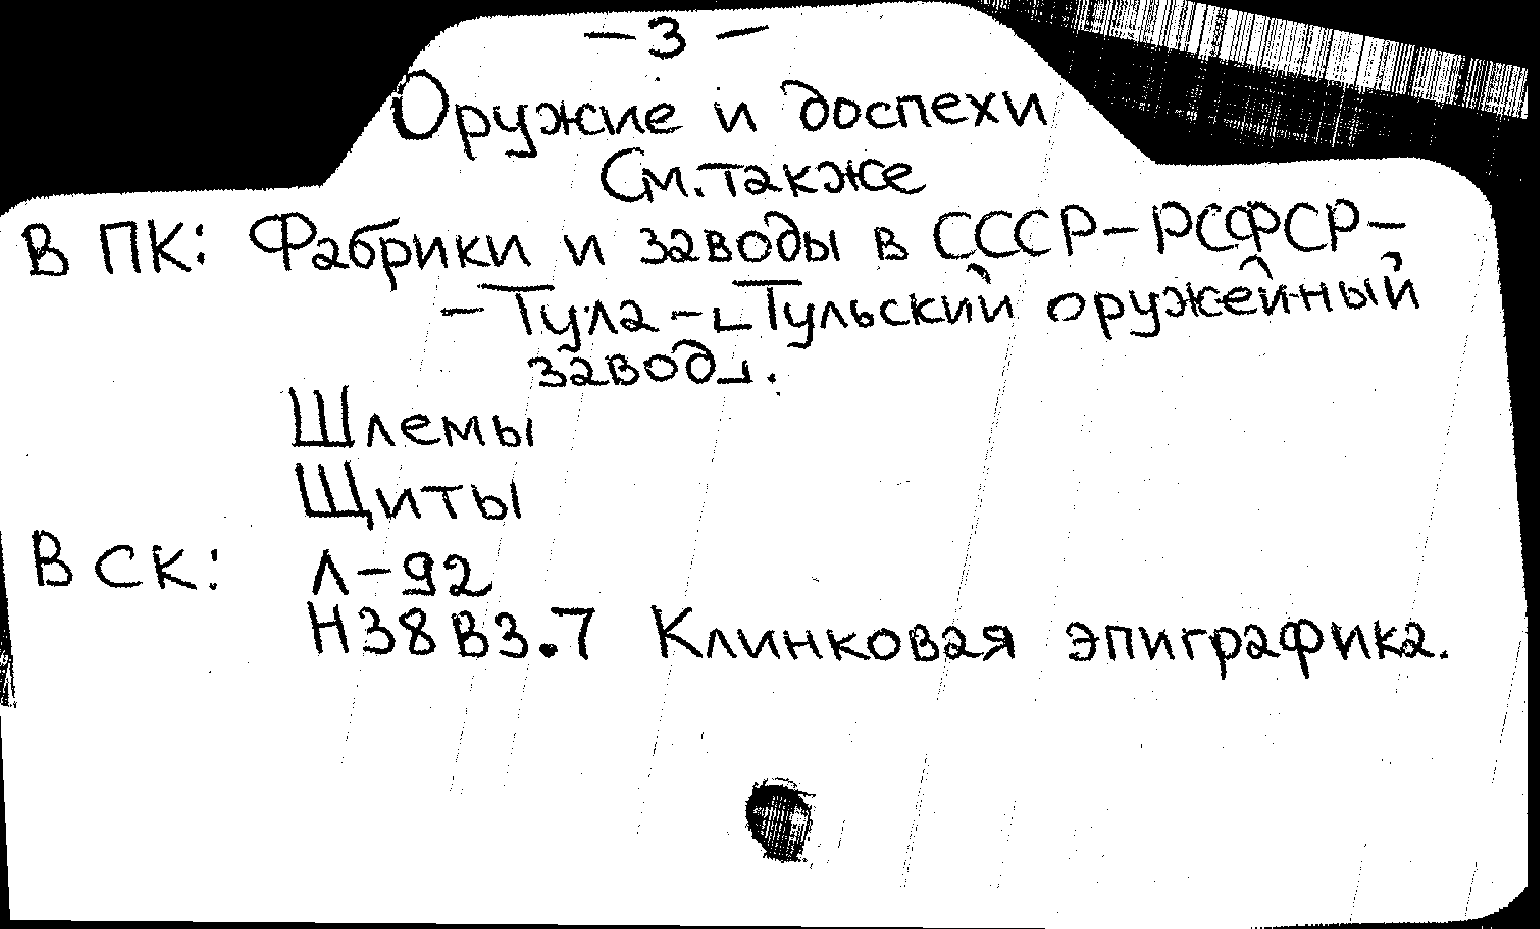 — 3 —
Оружие и доспехи
См. также
В ПК: Фабрики и заводы в СССР – РСФСР –
– Тула – ∟Тульский оружейный
завод⅃.
Шлемы
Щиты
В СК: Л-92
Н38 В3.7 Клинковая эпиграфика.